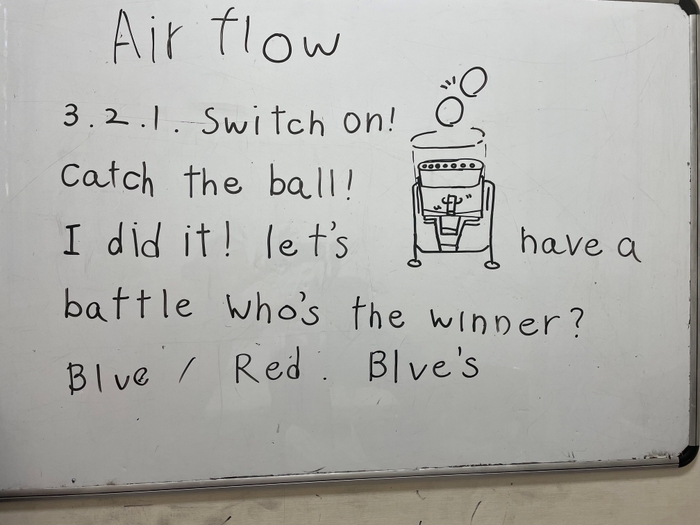 Air flow
3.2.1. Switch on!
Catch the ball!
I did it! let's have a
battle who's the winner?
Blue / Red. Blue's